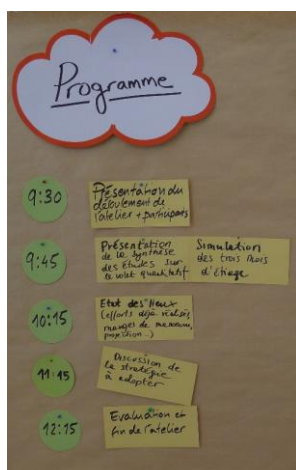 Programme
9:30
Présentation du
déroulement de
l'atelier + participants
9:45
Présentation
de la Synthèse
des Études sur
le volet quantitatif
Simulation
des trois mois
d'étiage
10:15
Etat des lieux
(efforts déjà réalisés,
marges de manœuvre,
projection...)
11:15
Discussion de
la stratégie
à adopter
12:15
Evaluation et
fin de l'atelier